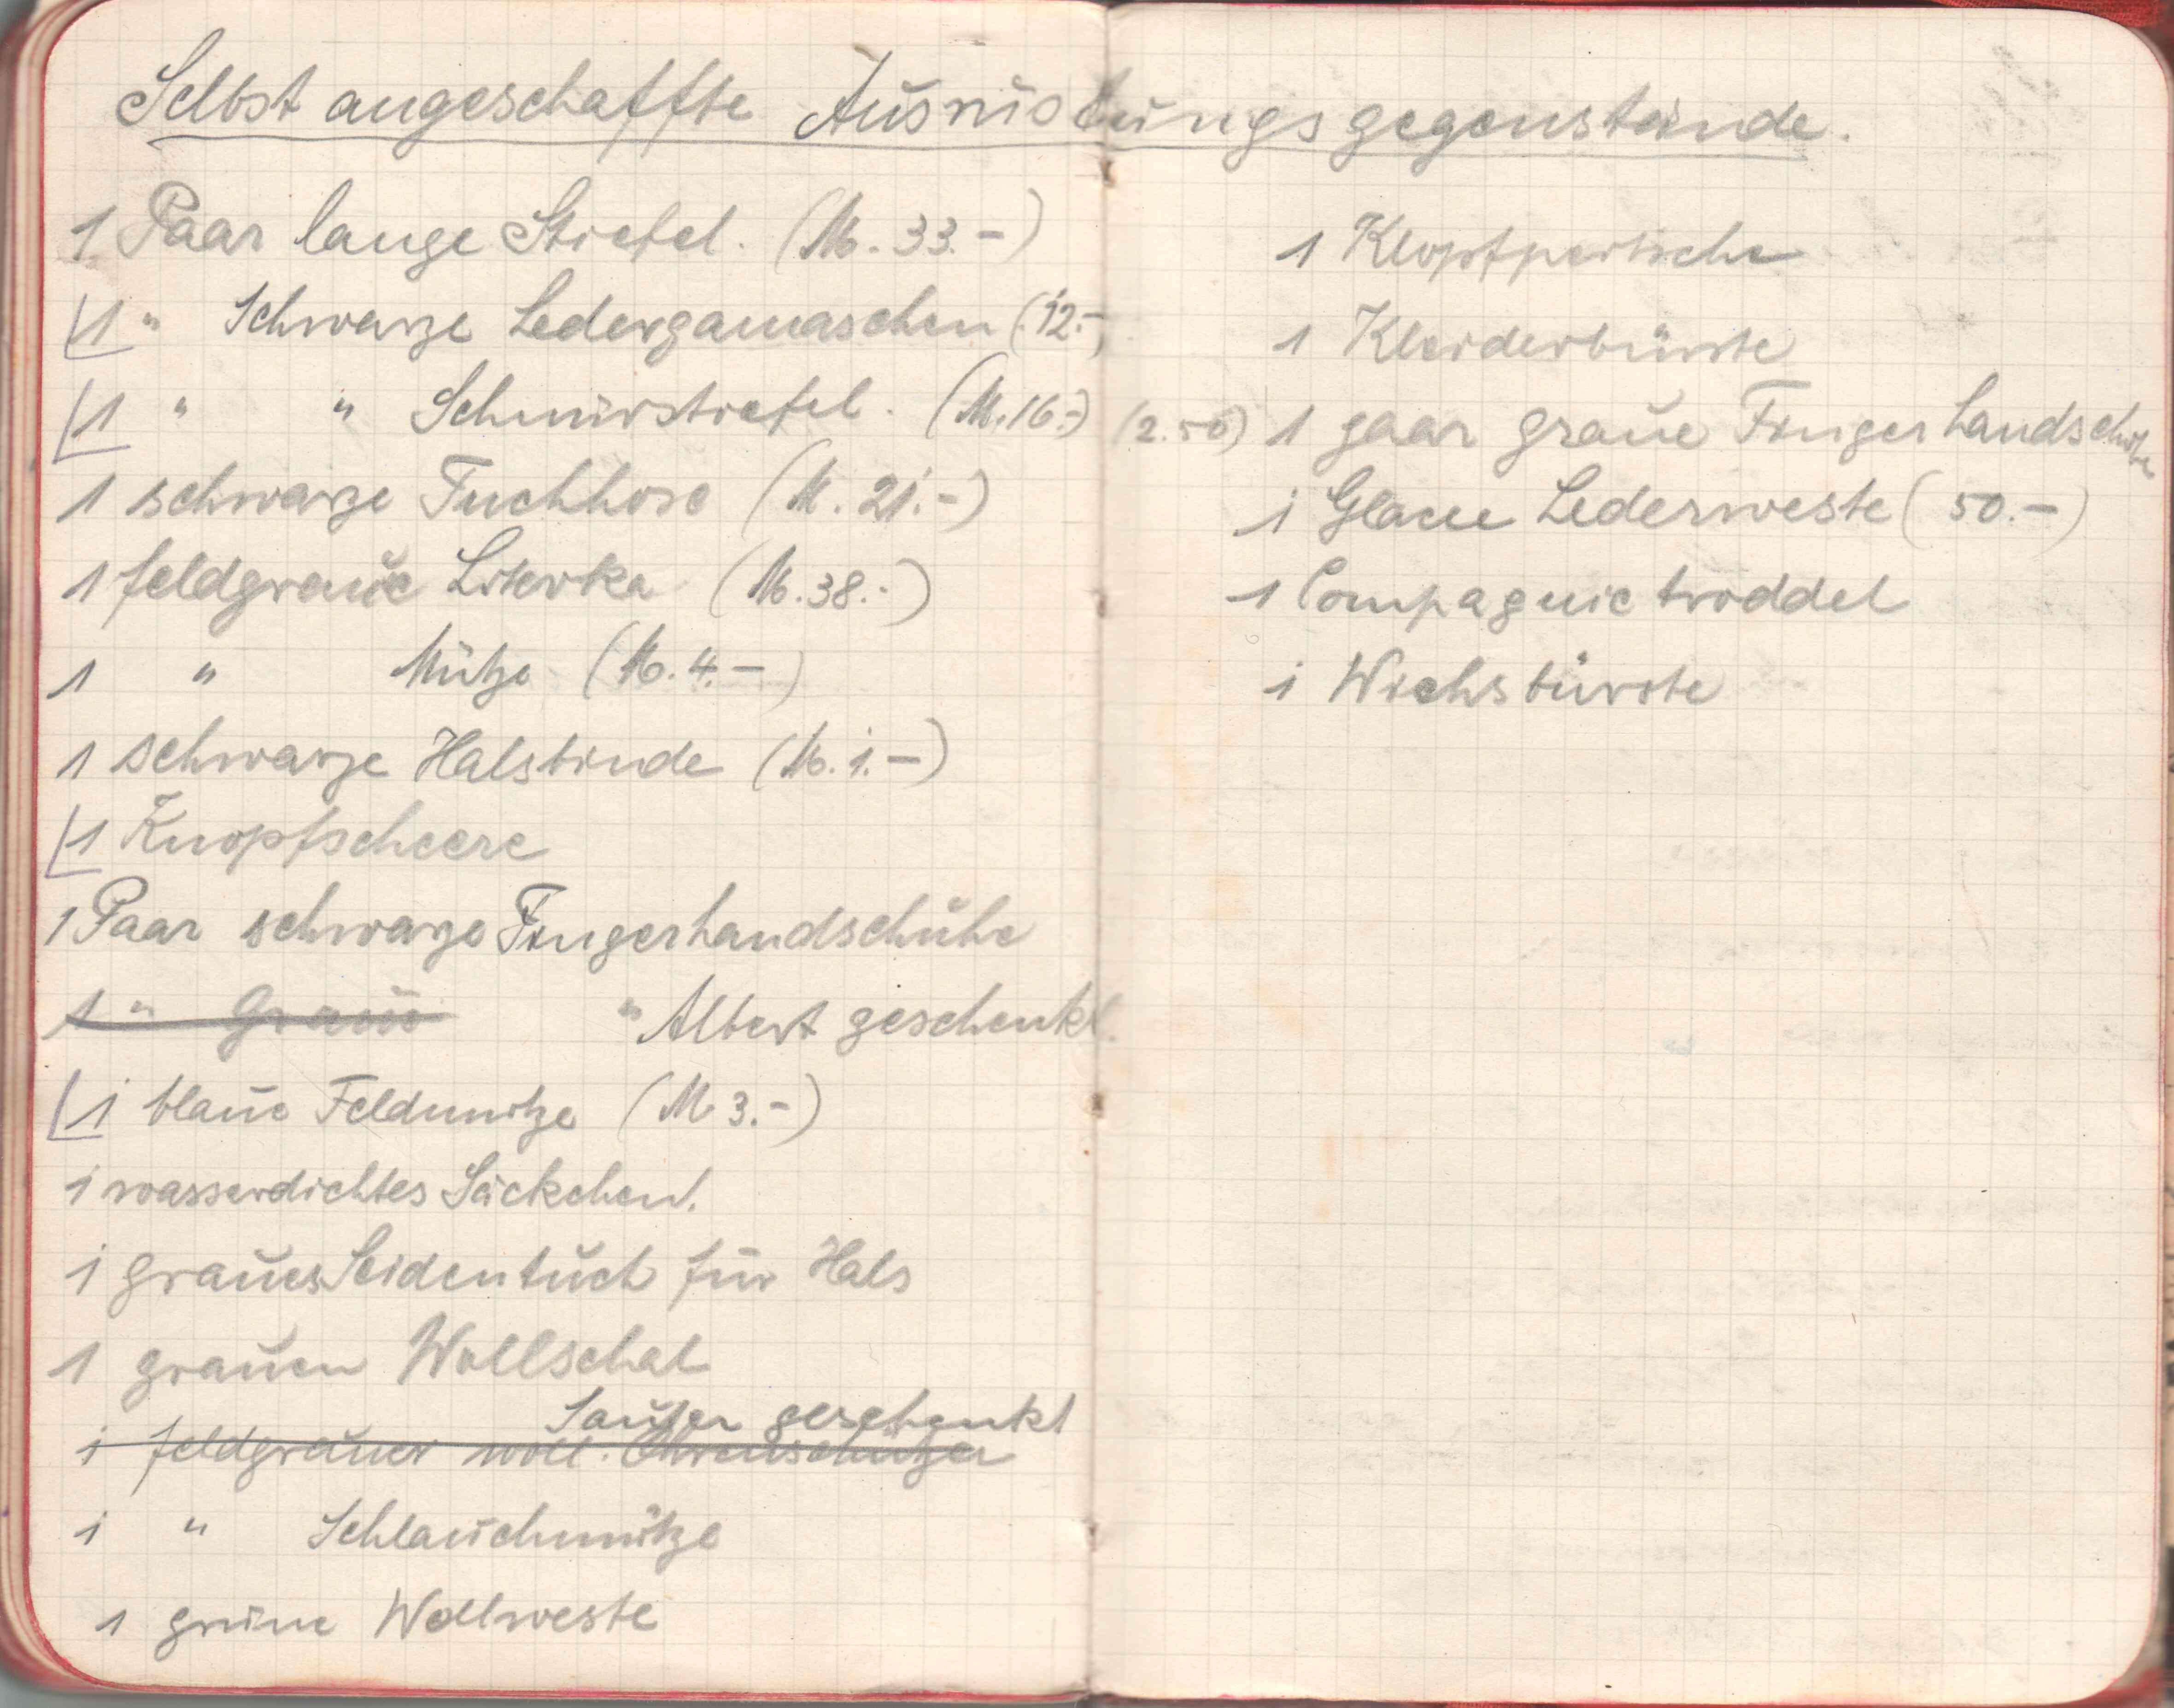 Selbst angeschaffte Ausrüstungsgegenstände.
1 Paar lange Stiefel. (M. 33.-)
1 " Schwarze Ledergamaschen (12.-)
1 " " Schnürstiefel. (M. 16.-)
1 schwarze Tuchhose (M. 21.-)
1 feldgraue Litevka (M. 38.-)
1 " Mütze (M. 4.-)
1 schwarze Halsbinde (M. 1.-)
1 Knopfscheere
1 Paar schwarze Fingerhandschuhe
1 " Graue " Albert geschenkt.
1 blaue Feldmütze (M 3.-)
1 wasserdichtes Säckchen.
1 graues Seidentuch für Hals
1 grauen Wollschal
Sauter geschenkt
1 feldgrauer woll. Ohrenschützer
1 " Schlauchmütze
1 grüne Wollweste
1 Klopfpeitsche
1 Kleiderbürste
(2.50) 1 paar graue Fingerhandschuhe
1 Glacee Lederweste (50.-)
1 Compagnie troddel
1 Wichsbürste